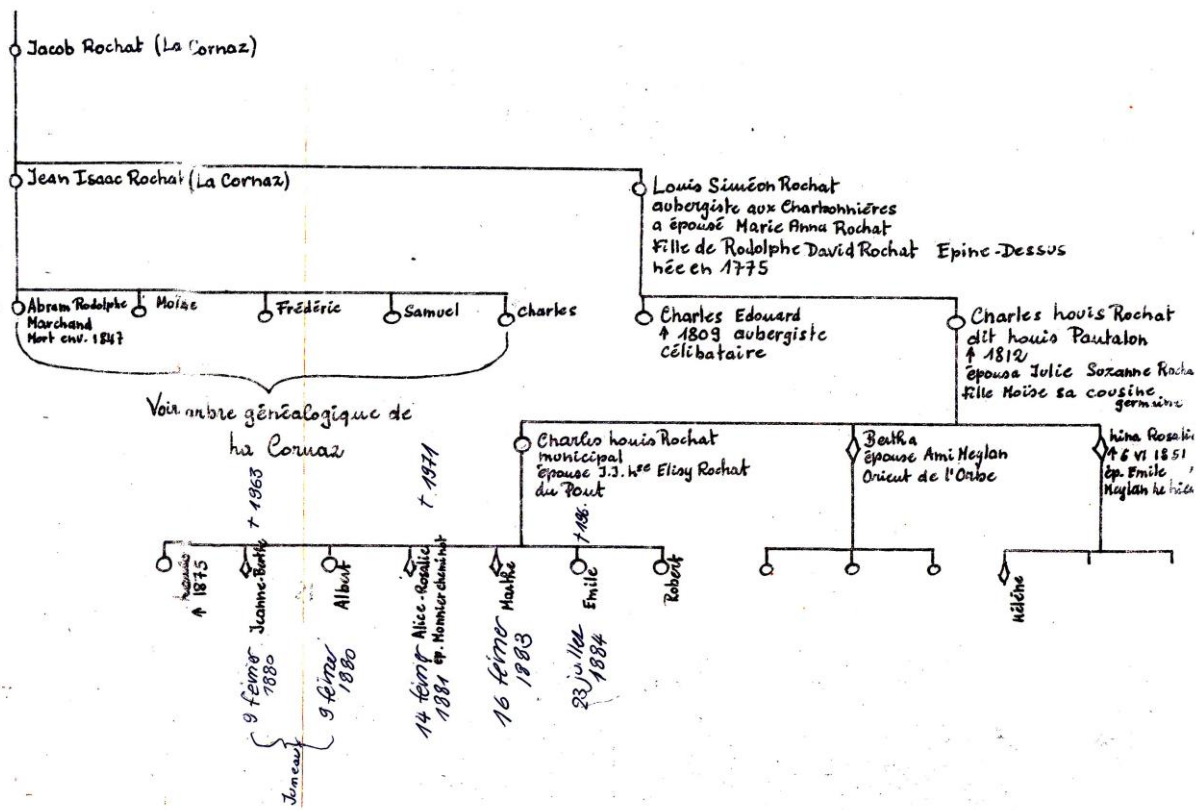 Jacob Rochat (La Cornaz)
Jean Isaac Rochat (La Cornaz)
Louis Siméon Rochat
aubergiste aux Charbonnières
a épousé Marie Anna Rochat
Fille de Rodolphe David Rochat Epine-Dessus
née en 1775
Abram Rodolphe
Marchand
Mort env. 1847
Moïse
Frédéric
Samuel
Charles
Charles Edouard
↑ 1809 aubergiste
célibataire
Charles Louis Rochat
dit Louis Pantalon
↑ 1812
épousa Julie Suzanne Rocha
Fille Moïse sa cousine
germaine
Voir arbre généalogique de
La Cornaz
Charles Louis Rochat
municipal
épouse J.J. Lse Elisy Rochat
du Pont
Bertha
épouse Ami Meylan
Orient de l'Orbe
Lina Rosalie
↑ 6 VI 1851
ép. Emile
Meylan Le
↑ 1875
Jeanne-Berthe
† 1963
9 février
1880
Albert
9 février
1880
Jumeaux
Alice-Rosalie
ép. Monnier cheminot
† 1971
14 février
1881
Marthe
16 février
1883
Emile
† 196.
23 juillet
1884
Robert
Hélène